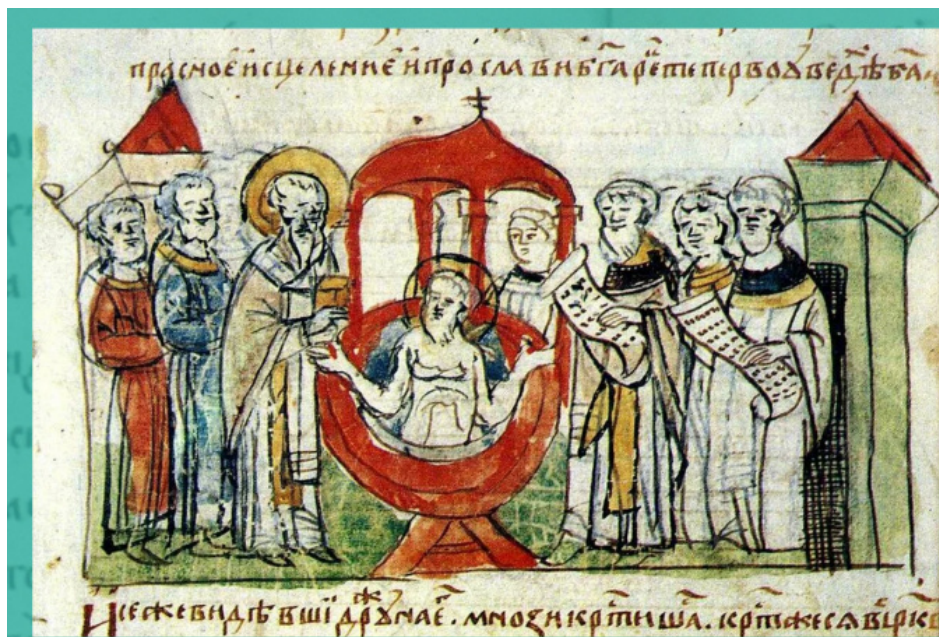 прасное исцеление и прослави бг҃а рⷱ҇е те перво ѹведѣ б҃а
И сеже видѣвшї дрꙋⷤна еⷢ҇. мнози крⷭ҇тиша. крⷭ҇тжеся в цр҃кв